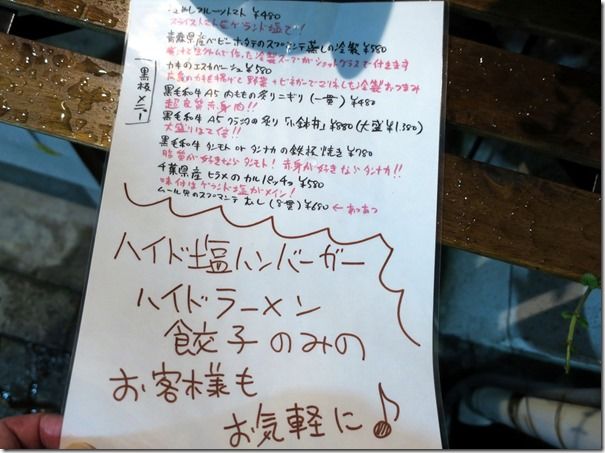 冷やしフルーツトマト ¥480
スライストマト ゲランド塩で!
青森県産ベビーホタテのスプマンテ蒸しの冷製 ¥580
冷製スープがショットグラスで付きます
カキのエスカベーシュ ¥580
広島のカキを揚げて野菜+ビネガーでマリネした冷製おつまみ
黒板メニュー
黒毛和牛 A5 内ももの炙りニギリ(一貫) ¥480
超良質赤身肉!!
黒毛和牛 A5 クラシタの炙り「小鉢丼」¥880(大盛¥1,380)
大盛りはで丼!!
黒毛和牛 タンモト or タンナカの鉄板焼き ¥780
脂質が好きならタンモト! 赤身が好きならタンナカ!!
千葉県産 ヒラメのカルパッチョ ¥580
味付はゲランド塩がメイン!
ムール貝のスプマンテむし(8貫) ¥680 ←あつあつ
ハイド塩ハンバーガー
ハイドラーメン
餃子のみの
お客様も
お気軽に♪